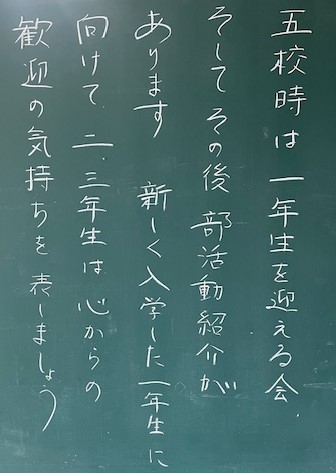 五校時は一年生を迎える会、
そしてその後部活動紹介が
あります 新しく入学した一年生に
向けて二、三年生は心からの
歓迎の気持ちを表しましょう